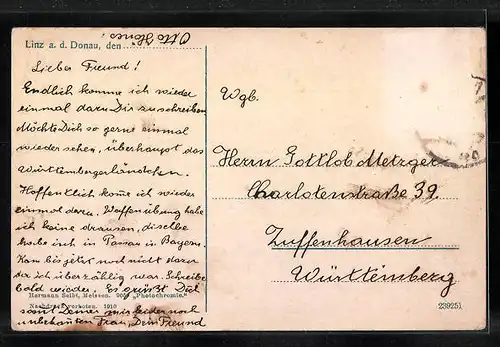 Linz a. d. Donau, den
Otto
Lieber Freund!
Endlich komme ich wieder
einmal dazu Dir zu schreiben
Möchte Dich so gerne einmal
wieder sehen, überhaupt das
Württembergerländchen.
Hoffentlich kome ich wieder
einmal dazu. Waffenübung habe
ich keine drausen, dieselbe
habe ich in Passau in Bayern.
Kam bis jetzt noch nicht dazu
da ich überzählig war. Schreibe
bald wieder. Es grüsst Dich
samt Deiner mir leider noch
unbekanten Frau, Dein Freund
Hermann Seibt, Meissen. „Photochromie."
Nachdruck verboten. 1910
Wgb.
Herrn Gottlob Metzger
Charlotenstraße 39.
Zuffenhausen
Württemberg
239251